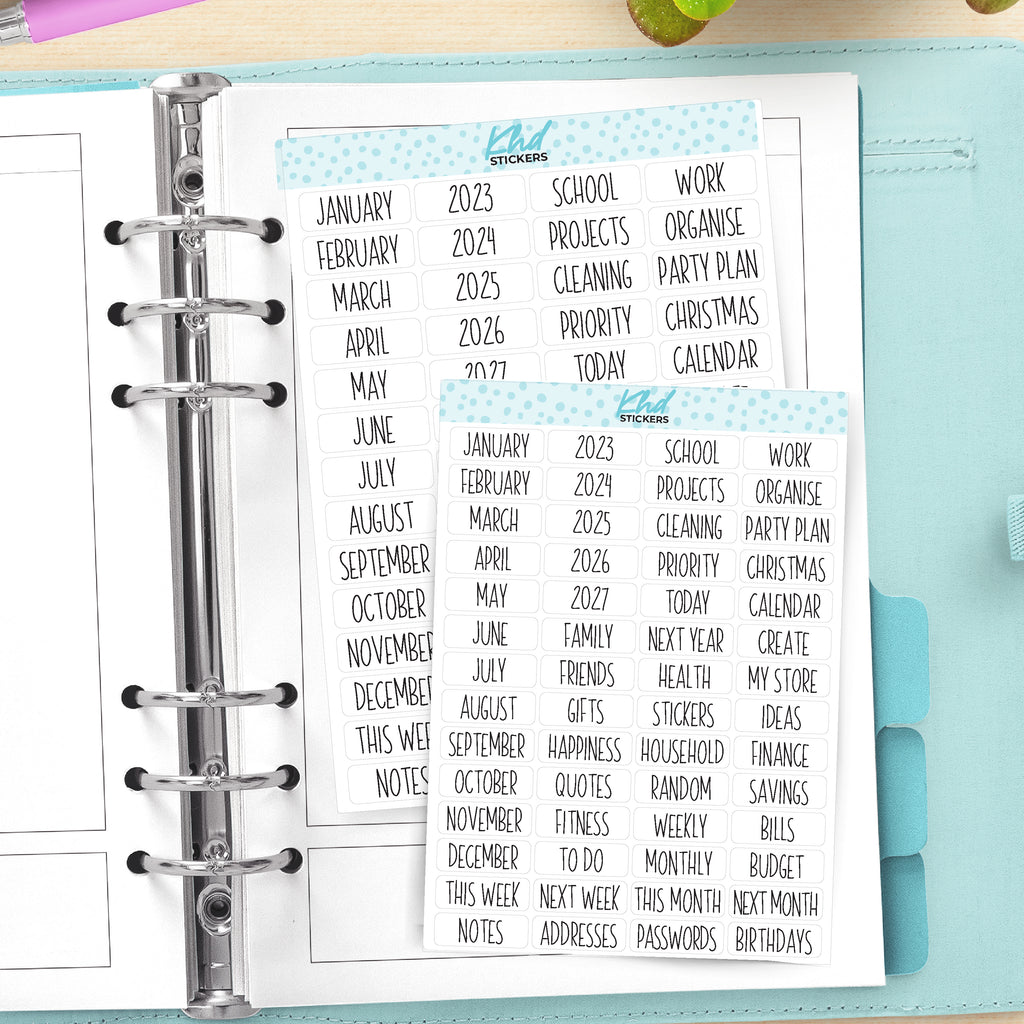 Khd
STICKERS
JANUARY 2023 SCHOOL WORK
FEBRUARY 2024 PROJECTS ORGANISE
MARCH 2025 CLEANING PARTY PLAN
APRIL 2026 PRIORITY CHRISTMAS
MAY 2027 TODAY CALENDAR
JUNE
JULY
AUGUST
SEPTEMBER
OCTOBER
NOVEMBER
DECEMBER
THIS WEE
NOTES
Khd
STICKERS
JANUARY 2023 SCHOOL WORK
FEBRUARY 2024 PROJECTS ORGANISE
MARCH 2025 CLEANING PARTY PLAN
APRIL 2026 PRIORITY CHRISTMAS
MAY 2027 TODAY CALENDAR
JUNE FAMILY NEXT YEAR CREATE
JULY FRIENDS HEALTH MY STORE
AUGUST GIFTS STICKERS IDEAS
SEPTEMBER HAPPINESS HOUSEHOLD FINANCE
OCTOBER QUOTES RANDOM SAVINGS
NOVEMBER FITNESS WEEKLY BILLS
DECEMBER TO DO MONTHLY BUDGET
THIS WEEK NEXT WEEK THIS MONTH NEXT MONTH
NOTES ADDRESSES PASSWORDS BIRTHDAYS